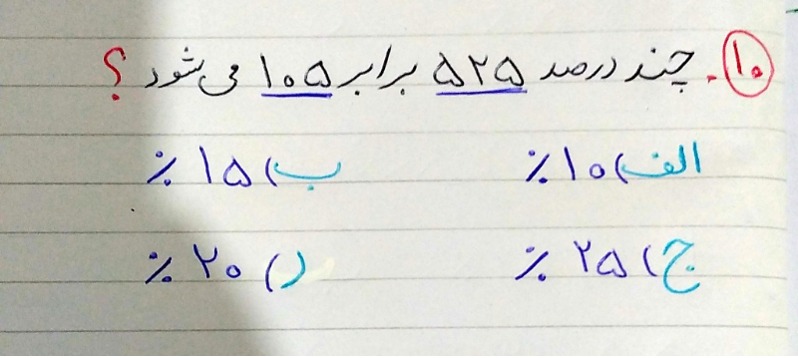 ۱۰. چند درصد ۵۲۵ برابر ۱۰۵ می شود ؟
الف) ۱۰٪ ب) ۱۵٪
ج) ۲۵٪ د) ۲۰٪